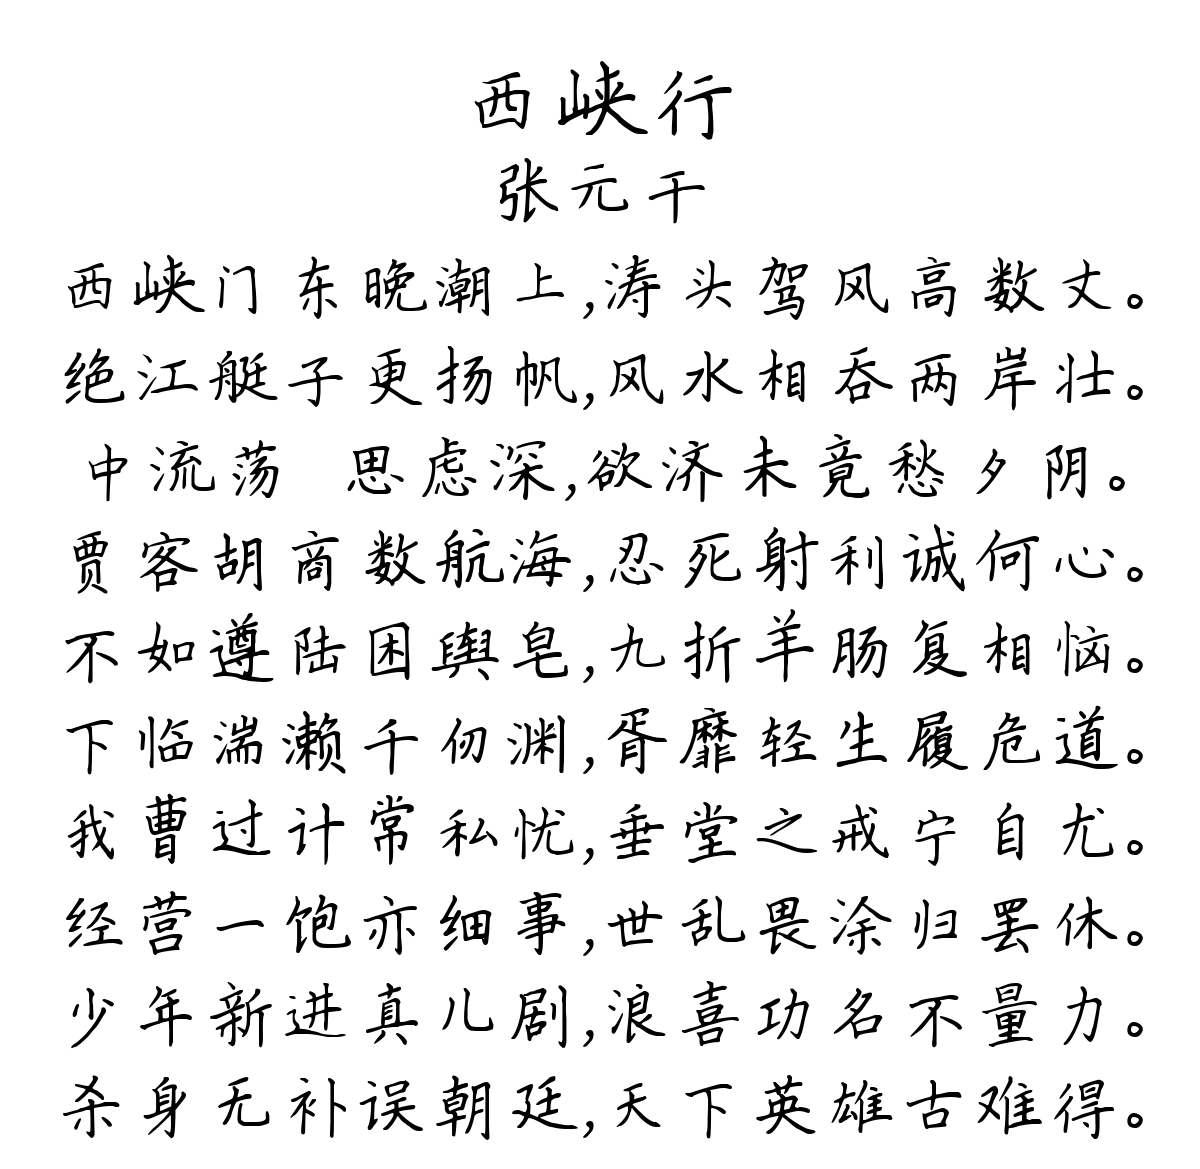 西峡行
张元干
西峡门东晚潮上,涛头驾风高数丈。
绝江艇子更扬帆,风水相吞两岸壮。
中流荡 思虑深,欲济未竟愁夕阴。
贾客胡商数航海,忍死射利诚何心。
不如遵陆困舆皂,九折羊肠复相恼。
下临湍濑千仞渊,胥靡轻生履危道。
我曹过计常私忧,垂堂之戒宁自尤。
经营一饱亦细事,世乱畏涂归罢休。
少年新进真儿剧,浪喜功名不量力。
杀身无补误朝廷,天下英雄古难得。